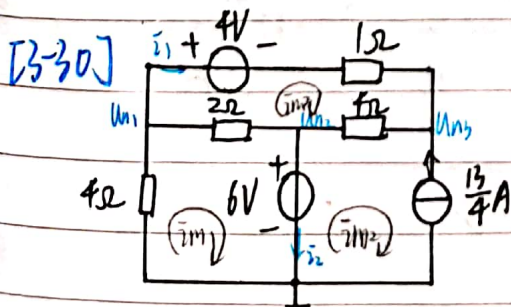 [3-30]
i₁ + 4V - 1Ω
Un₁ 2Ω Un₂ 4Ω Un₃
4Ω im₁ 6V + - i₂ im₂ 13/4 A